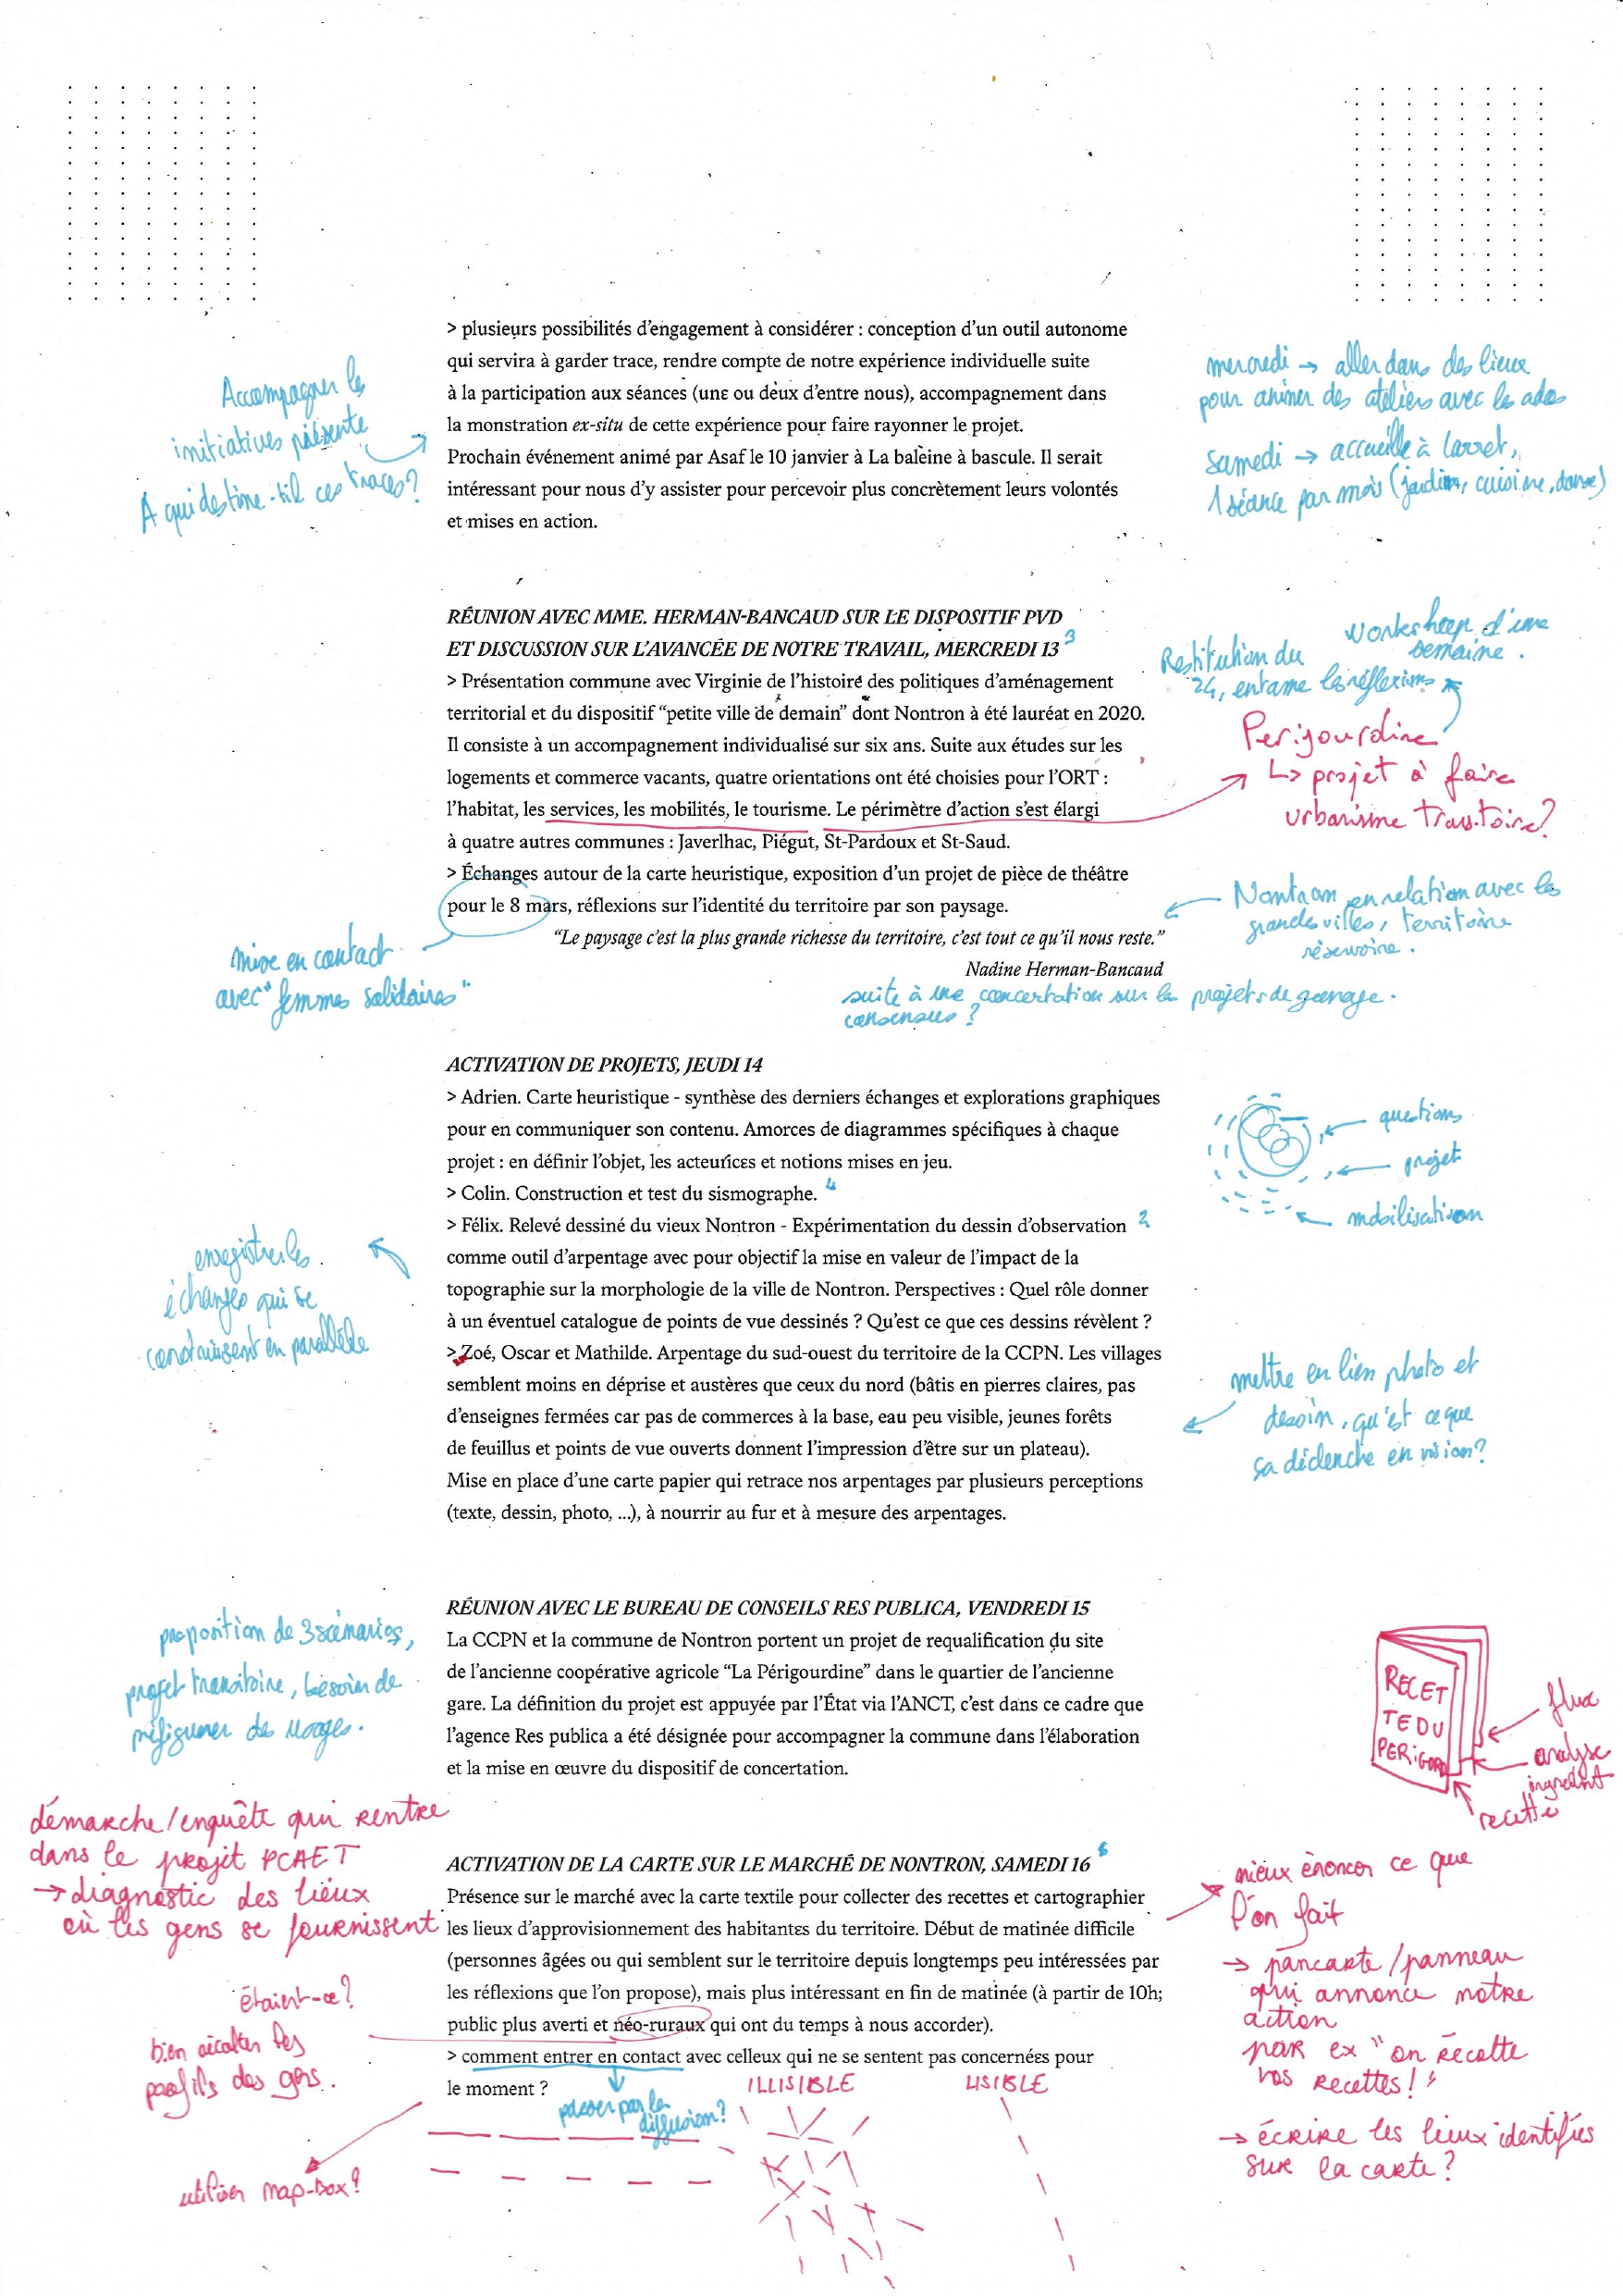 > plusieurs possibilités d'engagement à considérer : conception d'un outil autonome
qui servira à garder trace, rendre compte de notre expérience individuelle suite
à la participation aux séances (une ou deux d'entre nous), accompagnement dans
la monstration ex-situ de cette expérience pour faire rayonner le projet.
Prochain événement animé par Asaf le 10 janvier à La baleine à bascule. Il serait
intéressant pour nous d'y assister pour percevoir plus concrètement leurs volontés
et mises en action.
Accompagner les
initiatives présente
A qui destine-t-il ces traces?
mercredi → aller dans des lieux
pour animer des ateliers avec les ados
samedi → accueille à larret,
1 séance par mois (jardin, cuisine, danse)
RÉUNION AVEC MME. HERMAN-BANCAUD SUR LE DISPOSITIF PVD
ET DISCUSSION SUR L'AVANCÉE DE NOTRE TRAVAIL, MERCREDI 13 3
> Présentation commune avec Virginie de l'histoire des politiques d'aménagement
territorial et du dispositif “petite ville de demain” dont Nontron à été lauréat en 2020.
Il consiste à un accompagnement individualisé sur six ans. Suite aux études sur les
logements et commerce vacants, quatre orientations ont été choisies pour l'ORT :
l'habitat, les services, les mobilités, le tourisme. Le périmètre d'action s'est élargi
à quatre autres communes : Javerlhac, Piégut, St-Pardoux et St-Saud.
> Échanges autour de la carte heuristique, exposition d'un projet de pièce de théâtre
pour le 8 mars, réflexions sur l'identité du territoire par son paysage.
“Le paysage c'est la plus grande richesse du territoire, c'est tout ce qu'il nous reste.”
Nadine Herman-Bancaud
suite à une concertation sur les projets de gavage.
consensus ?
workshop d'une
semaine.
Restitution du
24, entame les réflexions
Perigourdine
↳ projet à faire
urbanisme transitoire?
Nontron en relation avec les
grandes villes, territoire
réservoire.
mise en contact
avec "femmes solidaires"
ACTIVATION DE PROJETS, JEUDI 14
> Adrien. Carte heuristique - synthèse des derniers échanges et explorations graphiques
pour en communiquer son contenu. Amorces de diagrammes spécifiques à chaque
projet : en définir l'objet, les acteurices et notions mises en jeu.
> Colin. Construction et test du sismographe. 4
> Félix. Relevé dessiné du vieux Nontron - Expérimentation du dessin d'observation 2
comme outil d'arpentage avec pour objectif la mise en valeur de l'impact de la
topographie sur la morphologie de la ville de Nontron. Perspectives : Quel rôle donner
à un éventuel catalogue de points de vue dessinés ? Qu'est ce que ces dessins révèlent ?
> Zoé, Oscar et Mathilde. Arpentage du sud-ouest du territoire de la CCPN. Les villages
semblent moins en déprise et austères que ceux du nord (bâtis en pierres claires, pas
d'enseignes fermées car pas de commerces à la base, eau peu visible, jeunes forêts
de feuillus et points de vue ouverts donnent l'impression d'être sur un plateau).
Mise en place d'une carte papier qui retrace nos arpentages par plusieurs perceptions
(texte, dessin, photo, ...), à nourrir au fur et à mesure des arpentages.
questions
projet
mobilisation
enregistrer les
échanges qui se
construisent en parallèle
mettre en lien photo et
dessin, qu'est ce que
sa déclenche en vision?
RÉUNION AVEC LE BUREAU DE CONSEILS RES PUBLICA, VENDREDI 15
La CCPN et la commune de Nontron portent un projet de requalification du site
de l'ancienne coopérative agricole “La Périgourdine” dans le quartier de l'ancienne
gare. La définition du projet est appuyée par l'État via l'ANCT, c'est dans ce cadre que
l'agence Res publica a été désignée pour accompagner la commune dans l'élaboration
et la mise en œuvre du dispositif de concertation.
proposition de 3 scénarios,
projet transitoire, besoin de
préfigurer des usages.
RECET
TE DU
PERIGORD
flux
analyse
ingredient
recette
ACTIVATION DE LA CARTE SUR LE MARCHÉ DE NONTRON, SAMEDI 16
Présence sur le marché avec la carte textile pour collecter des recettes et cartographier
les lieux d'approvisionnement des habitantes du territoire. Début de matinée difficile
(personnes âgées ou qui semblent sur le territoire depuis longtemps peu intéressées par
les réflexions que l'on propose), mais plus intéressant en fin de matinée (à partir de 10h;
public plus averti et néo-ruraux qui ont du temps à nous accorder).
> comment entrer en contact avec celleux qui ne se sentent pas concernées pour
le moment ?
passer par la
diffusion?
ILLISIBLE
LISIBLE
démarche/enquête qui rentre
dans le projet PCAET
→ diagnostic des lieux
où les gens se fournissent
étaient-ce?
bien récolter les
profils des gens.
utiliser map-box?
mieux énoncer ce que
l'on fait
→ pancarte/panneau
qui annonce notre
action
par ex "on récolte
vos recettes!"
→ écrire les lieux identifiés
sur la carte?